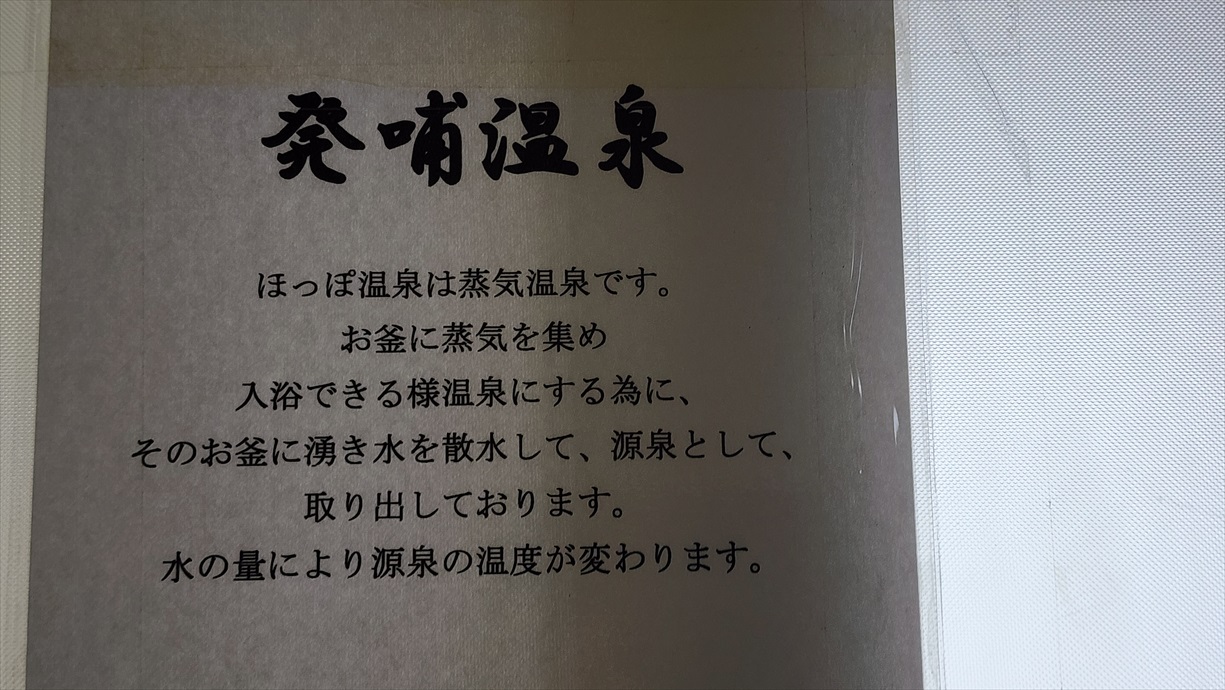 発哺温泉
ほっぽ温泉は蒸気温泉です。
お釜に蒸気を集め
入浴できる様温泉にする為に、
そのお釜に湧き水を散水して、源泉として、
取り出しております。
水の量により源泉の温度が変わります。